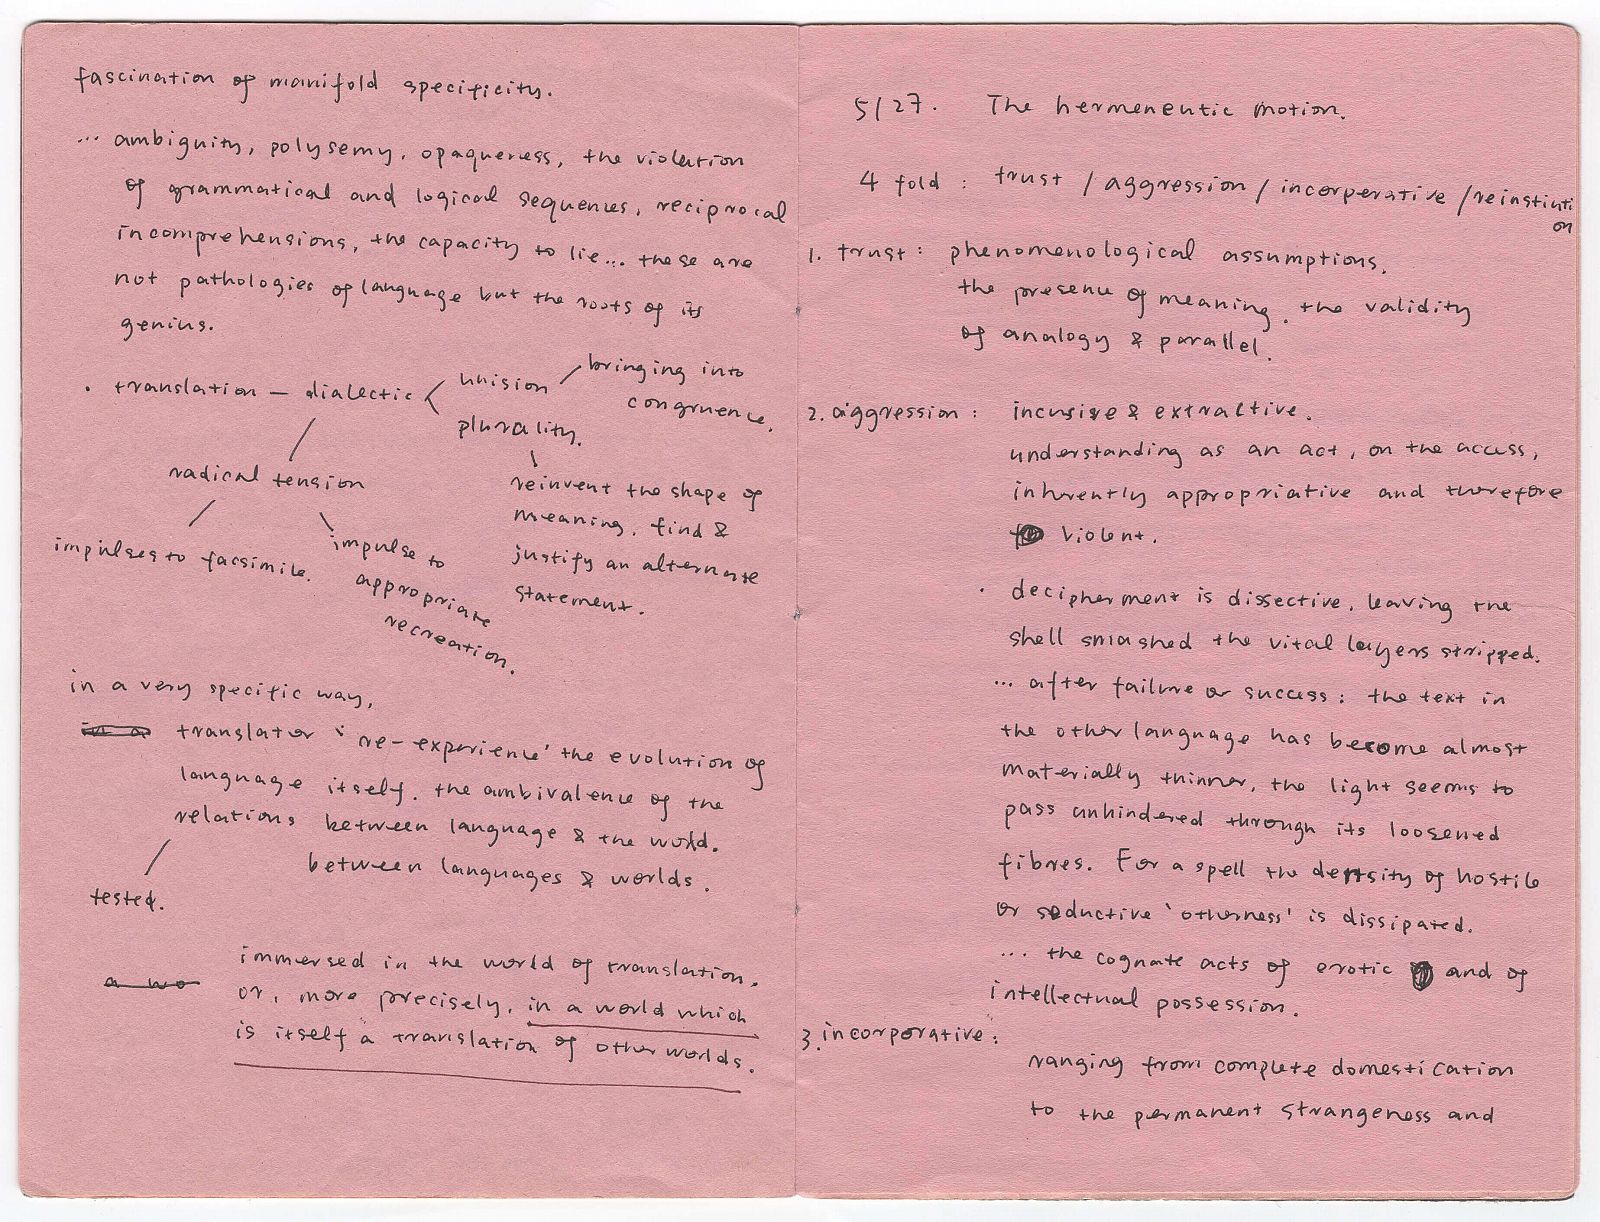 fascination of manifold specificity.
... ambiguity, polysemy, opaqueness, the violation
of grammatical and logical sequences, reciprocal
incomprehensions, the capacity to lie... these are
not pathologies of language but the roots of its
genius.
· translation — dialectic < unision / bringing into
congruence.
plurality.
radical tension
reinvent the shape of
meaning. find &
justify an alternate
statement.
impulses to facsimile.
impulse to
appropriate
recreation.
in a very specific way,
in a translator 're-experience' the evolution of
language itself. the ambivalence of the
relations between language & the world.
between languages & worlds.
tested.
immersed in the world of translation.
a wo or, more precisely, in a world which
is itself a translation of other worlds.
5/27. The hermeneutic motion.
4 fold : trust / aggression / incorperative / reinstituti
on
1. trust : phenomenological assumptions.
the presence of meaning. the validity
of analogy & parallel.
2. aiggression : incusive & extractive.
understanding as an act, on the access,
inherently appropriative and therefore
violent.
· decipherment is dissective, leaving the
shell smashed the vital layers stripped.
... after failure or success : the text in
the other language has become almost
materially thinner, the light seems to
pass unhindered through its loosened
fibres. For a spell the density of hostile
or seductive 'otherness' is dissipated.
... the cognate acts of erotic and of
intellectual possession.
3. incorporative :
ranging from complete domestication
to the permanent strangeness and